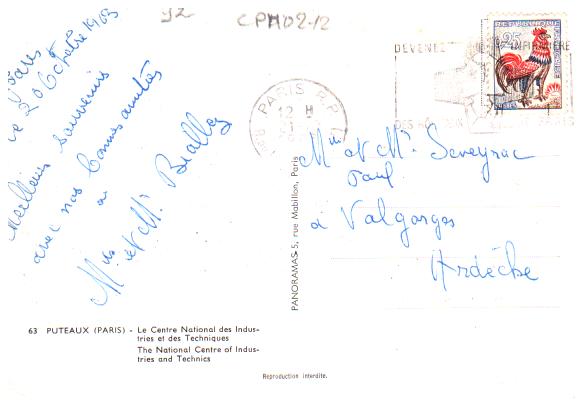 92
CPM02-12
Paris
le 20 Octobre 1963
Meilleurs souvenirs
avec nos bonnes amitiés
à
Mme et Mr
DEVENEZ INFIRMIÈRE
PARIS R.P.
12 H
0,25
PANORAMAS-5, rue Mabillon, Paris
Mme et Mr Seveyrac
Paul
à Valgorges
Ardèche
63 PUTEAUX (PARIS) - Le Centre National des Indus-
tries et des Techniques
The National Centre of Indus-
tries and Technics
Reproduction interdite.